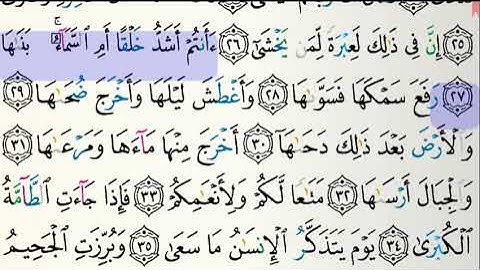 ٢٥ إِنَّ فِى ذَٰلِكَ لَعِبْرَةً لِّمَن يَخْشَىٰٓ ٢٦ ءَأَنتُمْ أَشَدُّ خَلْقًا أَمِ ٱلسَّمَآءُ ۚ بَنَىٰهَا
٢٧ رَفَعَ سَمْكَهَا فَسَوَّىٰهَا ٢٨ وَأَغْطَشَ لَيْلَهَا وَأَخْرَجَ ضُحَىٰهَا ٢٩
وَٱلْأَرْضَ بَعْدَ ذَٰلِكَ دَحَىٰهَآ ٣٠ أَخْرَجَ مِنْهَا مَآءَهَا وَمَرْعَىٰهَا ٣١
وَٱلْجِبَالَ أَرْسَىٰهَا ٣٢ مَتَٰعًا لَّكُمْ وَلِأَنْعَٰمِكُمْ ٣٣ فَإِذَا جَآءَتِ ٱلطَّآمَّةُ
ٱلْكُبْرَىٰ ٣٤ يَوْمَ يَتَذَكَّرُ ٱلْإِنسَٰنُ مَا سَعَىٰ ٣٥ وَبُرِّزَتِ ٱلْجَحِيمُ